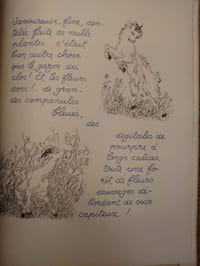 Savoureuse, fine, den-
telée, faite de mille
plantes c'était
bien autre chose
que le gazon du
clos! Et les fleurs
donc!.. de gran-
des campanules
bleues,
des
digitales de
pourpre à
longs calices,
toute une fo-
rêt de fleurs
sauvages dé-
bordant de sucs
capiteux!